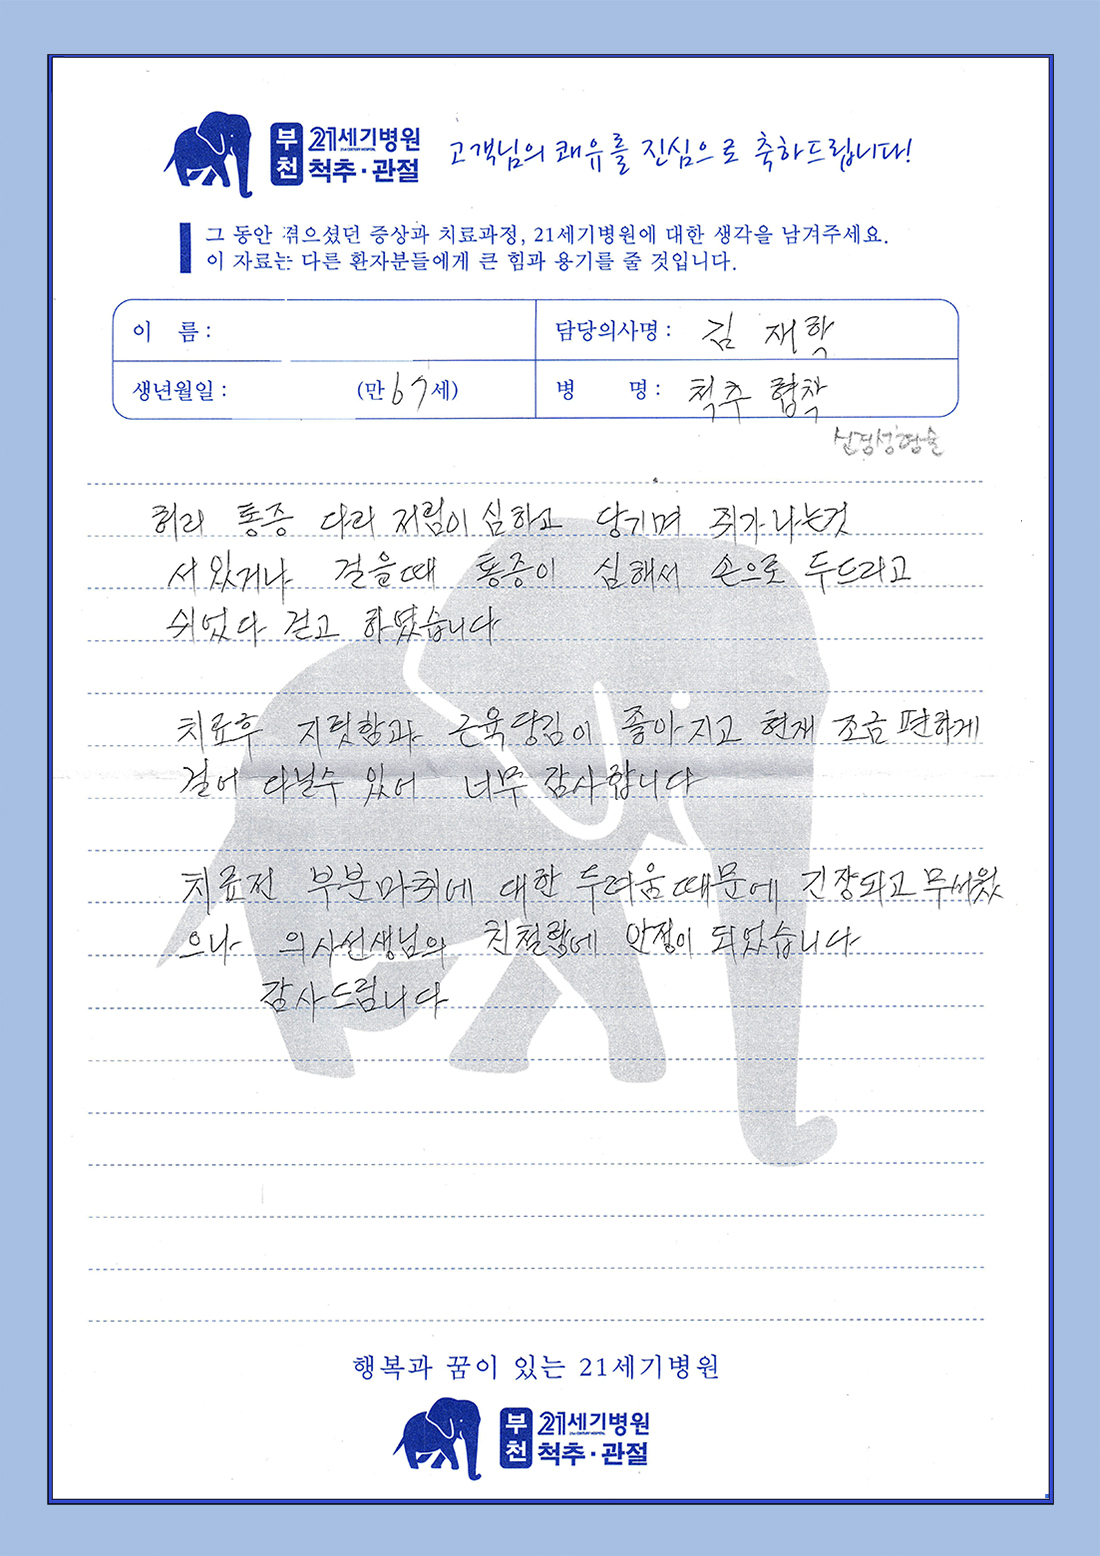 부천 21세기병원 척추·관절
고객님의 쾌유를 진심으로 축하드립니다!
그 동안 겪으셨던 증상과 치료과정, 21세기병원에 대한 생각을 남겨주세요.
이 자료는 다른 환자분들에게 큰 힘과 용기를 줄 것입니다.
이 름 : 담당의사명 : 김 재학
생년월일 : (만 67세) 병 명 : 척추 협착
신경성형술
허리 통증 다리 저림이 심하고 당기며 쥐가나는것
서있거나 걸을때 통증이 심해서 손으로 두드리고
쉬었다 걷고 하였습니다
치료후 지릿함과 근육당김이 좋아지고 현재 조금 편하게
걸어 다닐수 있어 너무 감사합니다
치료전 부분마취에 대한 두려움때문에 긴장되고 무서웠
으나 의사선생님의 친절함에 안정이 되었습니다
감사드립니다
행복과 꿈이 있는 21세기병원
부천 21세기병원 척추·관절